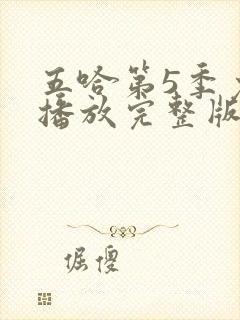 五哈第5季
播放完整版
倔傻